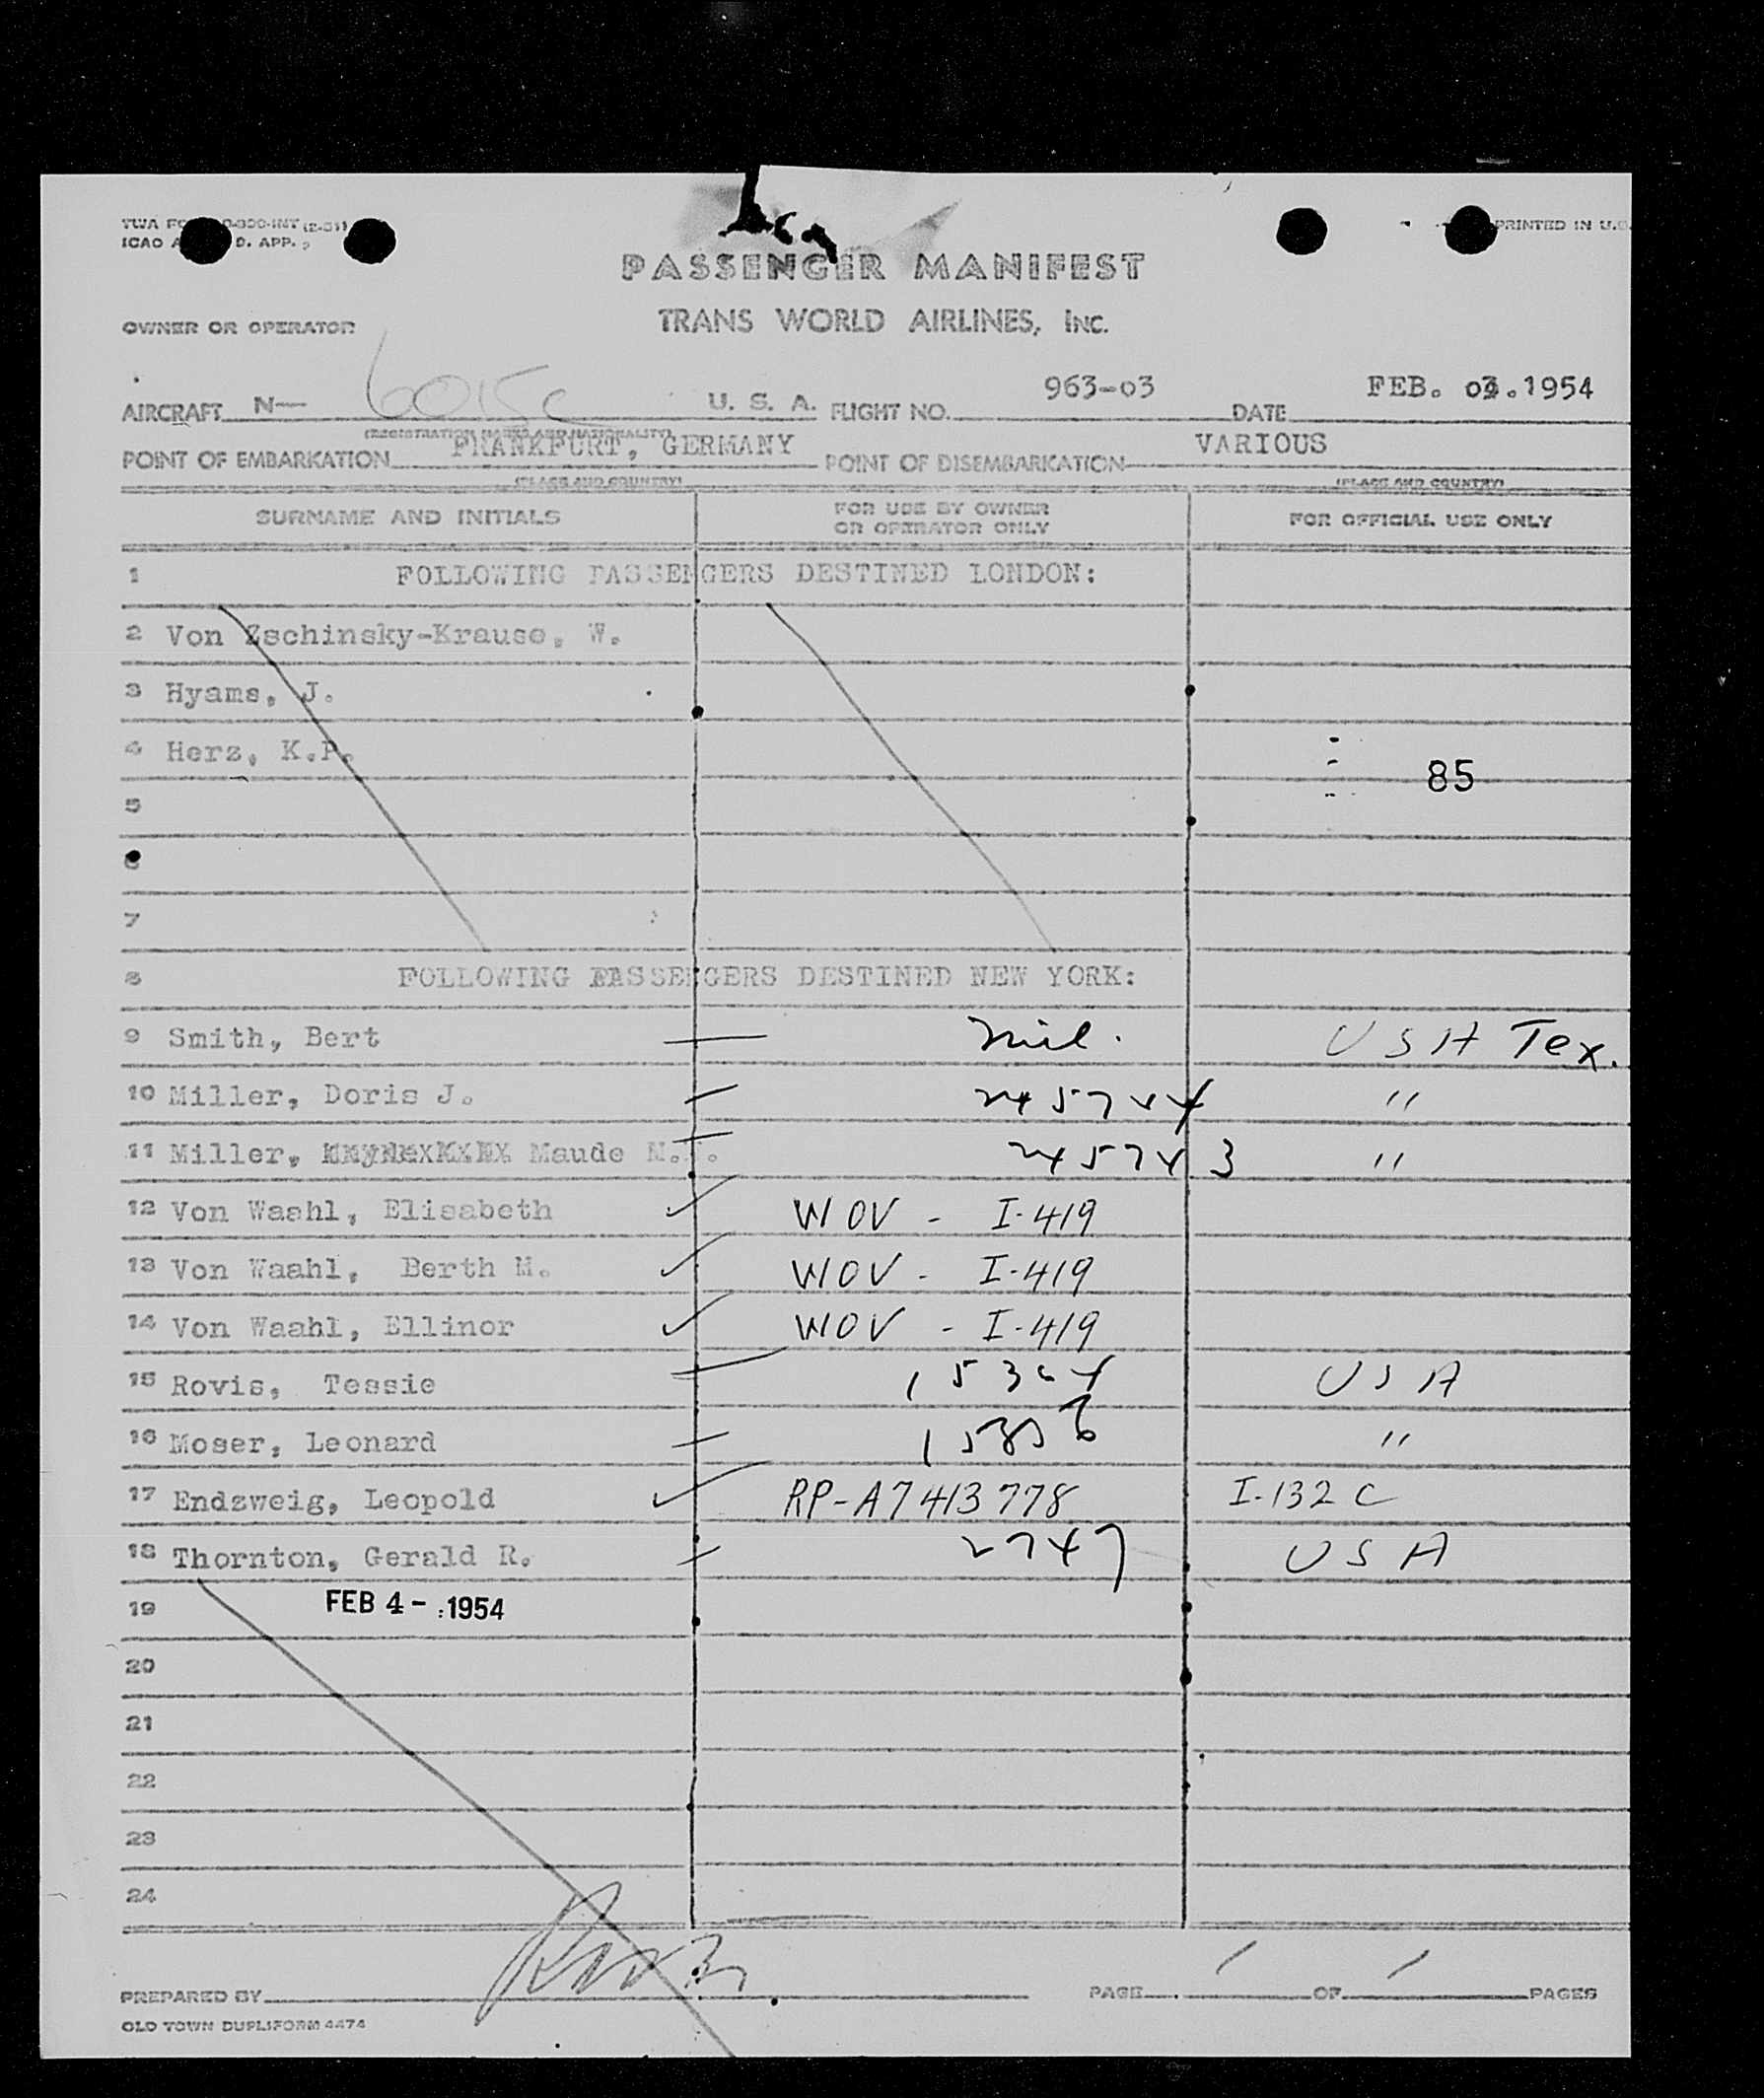 PRINTED IN U.S.
ICAO D. APP.
PASSENGER MANIFEST
TRANS WORLD AIRLINES, INC.
OWNER OR OPERATOR
AIRCRAFT N— U. S. A. FLIGHT NO. 963-03 DATE FEB. 03.1954
(REGISTRATION MARKS AND NATIONALITY)
POINT OF EMBARKATION FRANKFURT, GERMANY POINT OF DISEMBARKATION VARIOUS
(PLACE AND COUNTRY) (PLACE AND COUNTRY)
SURNAME AND INITIALS FOR USE BY OWNER OR OPERATOR ONLY FOR OFFICIAL USE ONLY
1 FOLLOWING PASSENGERS DESTINED LONDON:
2 Von Zschinsky-Krause, W.
3 Hyams, J.
4 Herz, K.P.
85
5
6
7
8 FOLLOWING PASSENGERS DESTINED NEW YORK:
9 Smith, Bert — mil. USA Tex.
10 Miller, Doris J. — 245744 "
11 Miller, Maude N. — 245743 "
12 Von Waahl, Elisabeth ✓ WOV - I-419
13 Von Waahl, Berth M. ✓ WOV - I-419
14 Von Waahl, Ellinor ✓ WOV - I-419
15 Rovis, Tessie — USA
16 Moser, Leonard — "
17 Endzweig, Leopold ✓ RP-A7413778 I-132 C
18 Thornton, Gerald R. — 2747 USA
19 FEB 4 - 1954
20
21
22
23
24
PREPARED BY PAGE 1 OF 1 PAGES
OLD TOWN DUPLIFORM 4474